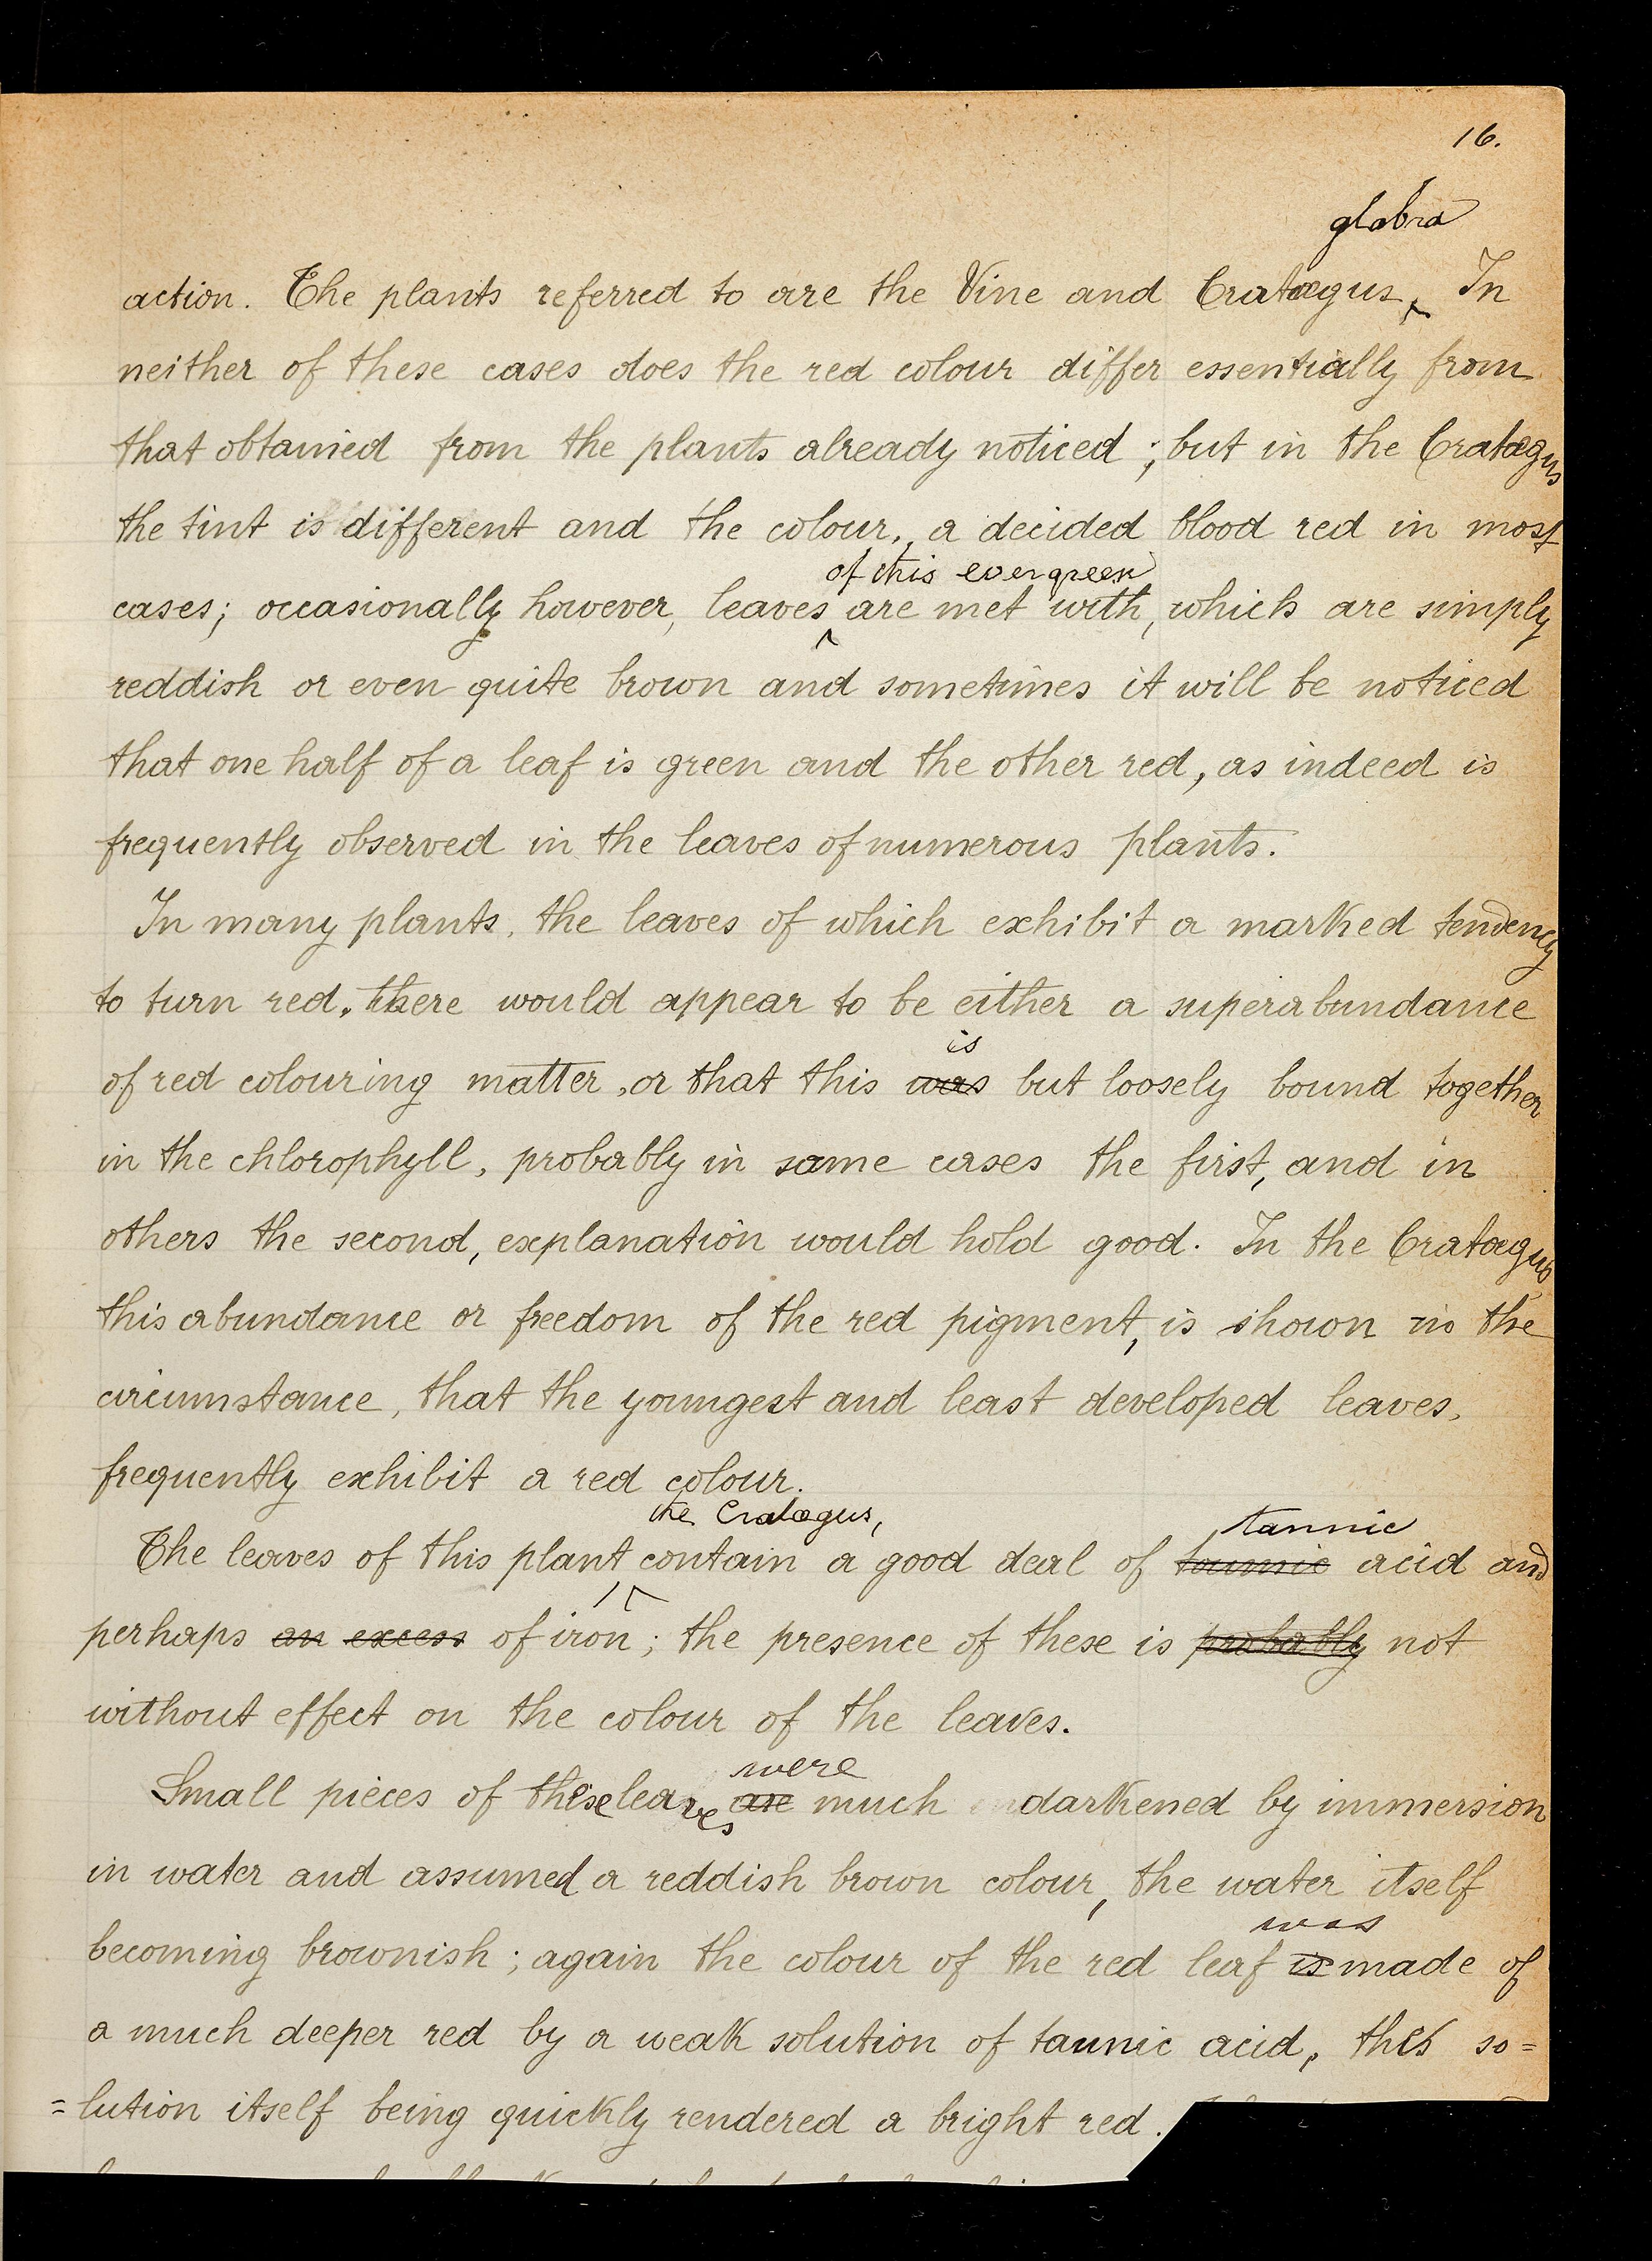 16.
glabra
action. The plants referred to are the Vine and Cratægus. In
neither of these cases does the red colour differ essentially from
that obtained from the plants already noticed; but in the Cratægus
the tint is different and the colour, a decided blood red in most
of this evergreen
cases; occasionally however, leaves are met with, which are simply
reddish or even quite brown and sometimes it will be noticed
that one half of a leaf is green and the other red, as indeed is
frequently observed in the leaves of numerous plants.
In many plants, the leaves of which exhibit a marked tendency
to turn red, there would appear to be either a superabundance
is
of red colouring matter, or that this was but loosely bound together
in the chlorophyll, probably in some cases the first, and in
others the second, explanation would hold good. In the Cratægus
this abundance or freedom of the red pigment, is shown in the
circumstance, that the youngest and least developed leaves,
frequently exhibit a red colour.
the Cratægus, tannic
The leaves of this plant contain a good deal of tannic acid and
perhaps an excess of iron; the presence of these is probably not
without effect on the colour of the leaves.
were
Small pieces of these leaves are much darkened by immersion
in water and assumed a reddish brown colour, the water itself
was
becoming brownish; again the colour of the red leaf is made of
a much deeper red by a weak solution of tannic acid, this so=
=lution itself being quickly rendered a bright red.